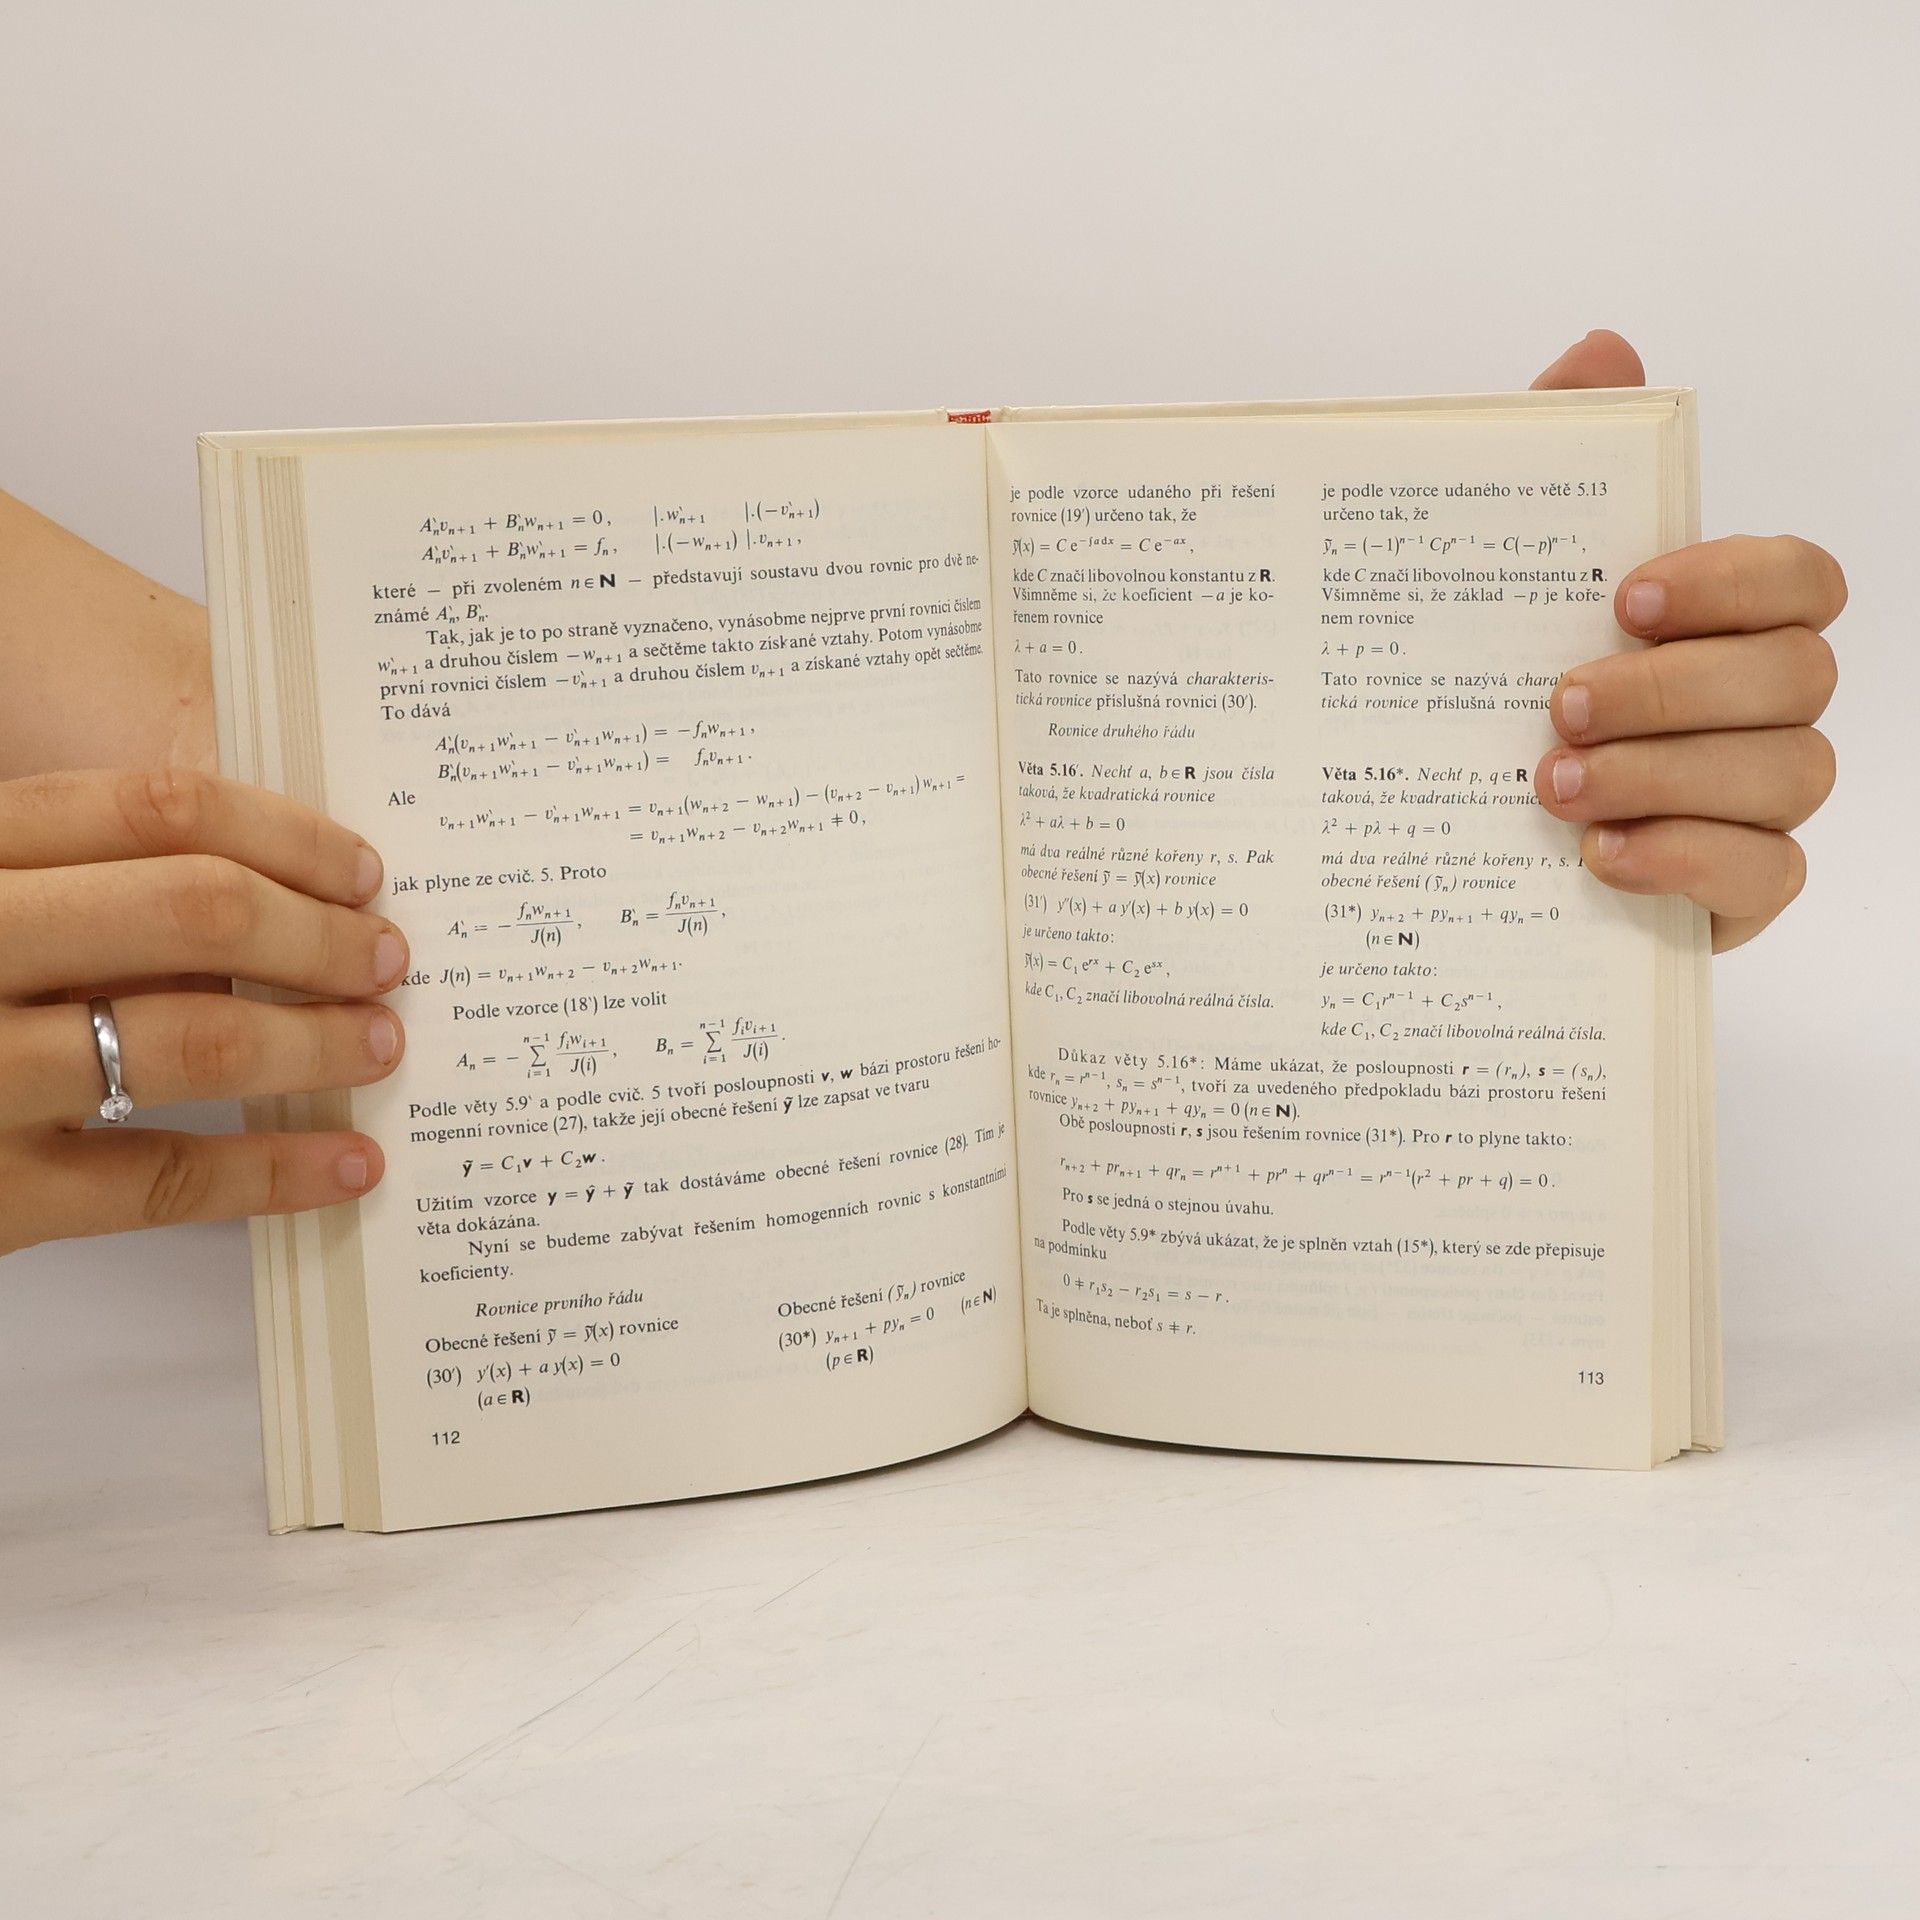 A`ₙvₙ₊₁ + B`ₙwₙ₊₁ = 0, |. w`ₙ₊₁ |.(−v`ₙ₊₁)
A`ₙv`ₙ₊₁ + B`ₙw`ₙ₊₁ = fₙ, |.(−wₙ₊₁) |. vₙ₊₁,
které — při zvoleném n ∈ N — představují soustavu dvou rovnic pro dvě ne-
známé A`ₙ, B`ₙ.
Tak, jak je to po straně vyznačeno, vynásobme nejprve první rovnici číslem
w`ₙ₊₁ a druhou číslem −wₙ₊₁ a sečtěme takto získané vztahy. Potom vynásobme
první rovnici číslem −v`ₙ₊₁ a druhou číslem vₙ₊₁ a získané vztahy opět sečtěme.
To dává
A`ₙ(vₙ₊₁w`ₙ₊₁ − v`ₙ₊₁wₙ₊₁) = −fₙwₙ₊₁,
B`ₙ(vₙ₊₁w`ₙ₊₁ − v`ₙ₊₁wₙ₊₁) = fₙvₙ₊₁.
Ale
vₙ₊₁w`ₙ₊₁ − v`ₙ₊₁wₙ₊₁ = vₙ₊₁(wₙ₊₂ − wₙ₊₁) − (vₙ₊₂ − vₙ₊₁)wₙ₊₁ =
= vₙ₊₁wₙ₊₂ − vₙ₊₂wₙ₊₁ ≠ 0,
jak plyne ze cvič. 5. Proto
A`ₙ = − fₙwₙ₊₁/J(n), B`ₙ = fₙvₙ₊₁/J(n),
kde J(n) = vₙ₊₁wₙ₊₂ − vₙ₊₂wₙ₊₁.
Podle vzorce (18`) lze volit
Aₙ = − ∑ᵢ₌₁ⁿ⁻¹ fᵢwᵢ₊₁/J(i), Bₙ = ∑ᵢ₌₁ⁿ⁻¹ fᵢvᵢ₊₁/J(i).
Podle věty 5.9` a podle cvič. 5 tvoří posloupnosti v, w bázi prostoru řešení ho-
mogenní rovnice (27), takže její obecné řešení ỹ lze zapsat ve tvaru
ỹ = C₁v + C₂w.
Užitím vzorce y = ŷ + ỹ tak dostáváme obecné řešení rovnice (28). Tím je
věta dokázána.
Nyní se budeme zabývat řešením homogenních rovnic s konstantními
koeficienty.
Rovnice prvního řádu
Obecné řešení ỹ = ỹ(x) rovnice
(30′) y′(x) + a y(x) = 0
(a ∈ R)
Obecné řešení (ỹₙ) rovnice
(30*) yₙ₊₁ + pyₙ = 0 (n ∈ N)
(p ∈ R)
112
je podle vzorce udaného při řešení
rovnice (19′) určeno tak, že
ỹ(x) = C e^(−∫a dx) = C e^(−ax),
kde C značí libovolnou konstantu z R.
Všimněme si, že koeficient −a je ko-
řenem rovnice
λ + a = 0.
Tato rovnice se nazývá charakteris-
tická rovnice příslušná rovnici (30′).
Rovnice druhého řádu
Věta 5.16′. Nechť a, b ∈ R jsou čísla
taková, že kvadratická rovnice
λ² + aλ + b = 0
má dva reálné různé kořeny r, s. Pak
obecné řešení ỹ = ỹ(x) rovnice
(31′) y″(x) + a y′(x) + b y(x) = 0
je určeno takto:
ỹ(x) = C₁ e^(rx) + C₂ e^(sx),
kde C₁, C₂ značí libovolná reálná čísla.
je podle vzorce udaného ve větě 5.13
určeno tak, že
ỹₙ = (−1)ⁿ⁻¹ Cpⁿ⁻¹ = C(−p)ⁿ⁻¹,
kde C značí libovolnou konstantu z R.
Všimněme si, že základ −p je koře-
nem rovnice
λ + p = 0.
Tato rovnice se nazývá
tická rovnice příslušná
Věta 5.16*. Nechť p, q ∈ R
taková, že kvadratická
λ² + pλ + q = 0
má dva reálné různé kořeny r, s.
obecné řešení (ỹₙ) rovnice
(31*) yₙ₊₂ + pyₙ₊₁ + qyₙ = 0
(n ∈ N)
je určeno takto:
yₙ = C₁rⁿ⁻¹ + C₂sⁿ⁻¹,
kde C₁, C₂ značí libovolná reálná čísla.
Důkaz věty 5.16*: Máme ukázat, že posloupnosti r = (rₙ), s = (sₙ),
kde rₙ = rⁿ⁻¹, sₙ = sⁿ⁻¹, tvoří za uvedeného předpokladu bázi prostoru řešení
rovnice yₙ₊₂ + pyₙ₊₁ + qyₙ = 0 (n ∈ N).
Obě posloupnosti r, s jsou řešením rovnice (31*). Pro r to plyne takto:
rₙ₊₂ + prₙ₊₁ + qrₙ = rⁿ⁺¹ + prⁿ + qrⁿ⁻¹ = rⁿ⁻¹(r² + pr + q) = 0.
Pro s se jedná o stejnou úvahu.
Podle věty 5.9* zbývá ukázat, že je splněn vztah (15*), který se zde přepisuje
na podmínku
0 ≠ r₁s₂ − r₂s₁ = s − r.
Ta je splněna, neboť s ≠ r.
113